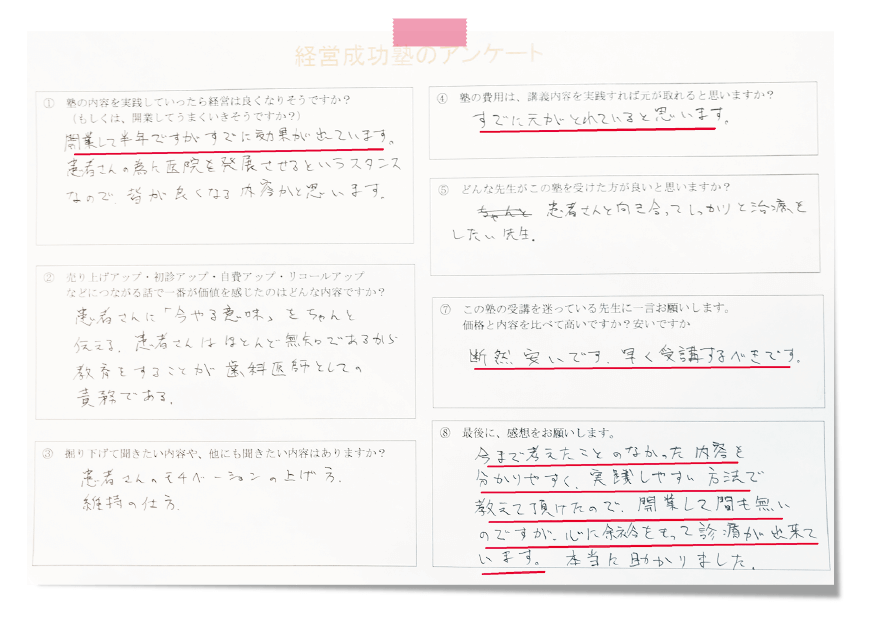 経営成功塾のアンケート
① 塾の内容を実践していったら経営は良くなりそうですか？
（もしくは、開業してうまくいきそうですか？）
開業して半年ですがすでに効果が出ています。
患者さんの為に医院を発展させるというスタンス
なので、皆が良くなる内容かと思います。
② 売り上げアップ・初診アップ・自費アップ・リコールアップ
などにつながる話で一番が価値を感じたのはどんな内容ですか？
患者さんに「今やる意味」をちゃんと
伝える。患者さんはほとんど無知であるから
教育をすることが歯科医師としての
責務である。
③ 掘り下げて聞きたい内容や、他にも聞きたい内容はありますか？
患者さんのモチベーションの上げ方、
維持の仕方。
④ 塾の費用は、講義内容を実践すれば元が取れると思いますか？
すでに元がとれていると思います。
⑤ どんな先生がこの塾を受けた方が良いと思いますか？
ちゃんと 患者さんと向き合ってしっかりと治療を
したい先生。
⑦ この塾の受講を迷っている先生に一言お願いします。
価格と内容を比べて高いですか？安いですか
断然安いです。早く受講するべきです。
⑧ 最後に、感想をお願いします。
今まで考えたことのなかった内容を
分かりやすく、実践しやすい方法で
教えて頂けたので、開業して間も無い
のですが、心に余裕をもって診療が出来て
います。本当に助かりました。